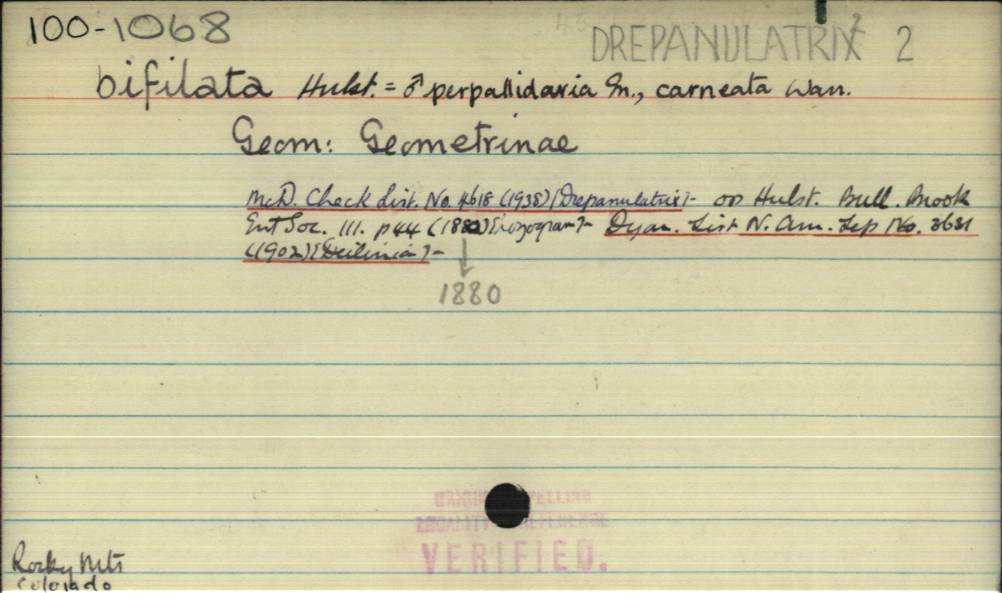 100-1068
DREPANULATRIX 2
bifilata Hulst. = ♂ perpallidaria Gn., carneata Warr.
Geom: Geometrinae
McD. Check List. No. 4618 (1938) [Drepanulatrix] - op Hulst. Bull. Brook
Ent Soc. III. p44 (1880) - Dyar. List N. Am. Lep No. 3631
(1902) [Deilinia] -
1880
ORIGINAL SPELLING
LOCALITY REFERENCE
VERIFIED.
Rocky Mts
Colorado